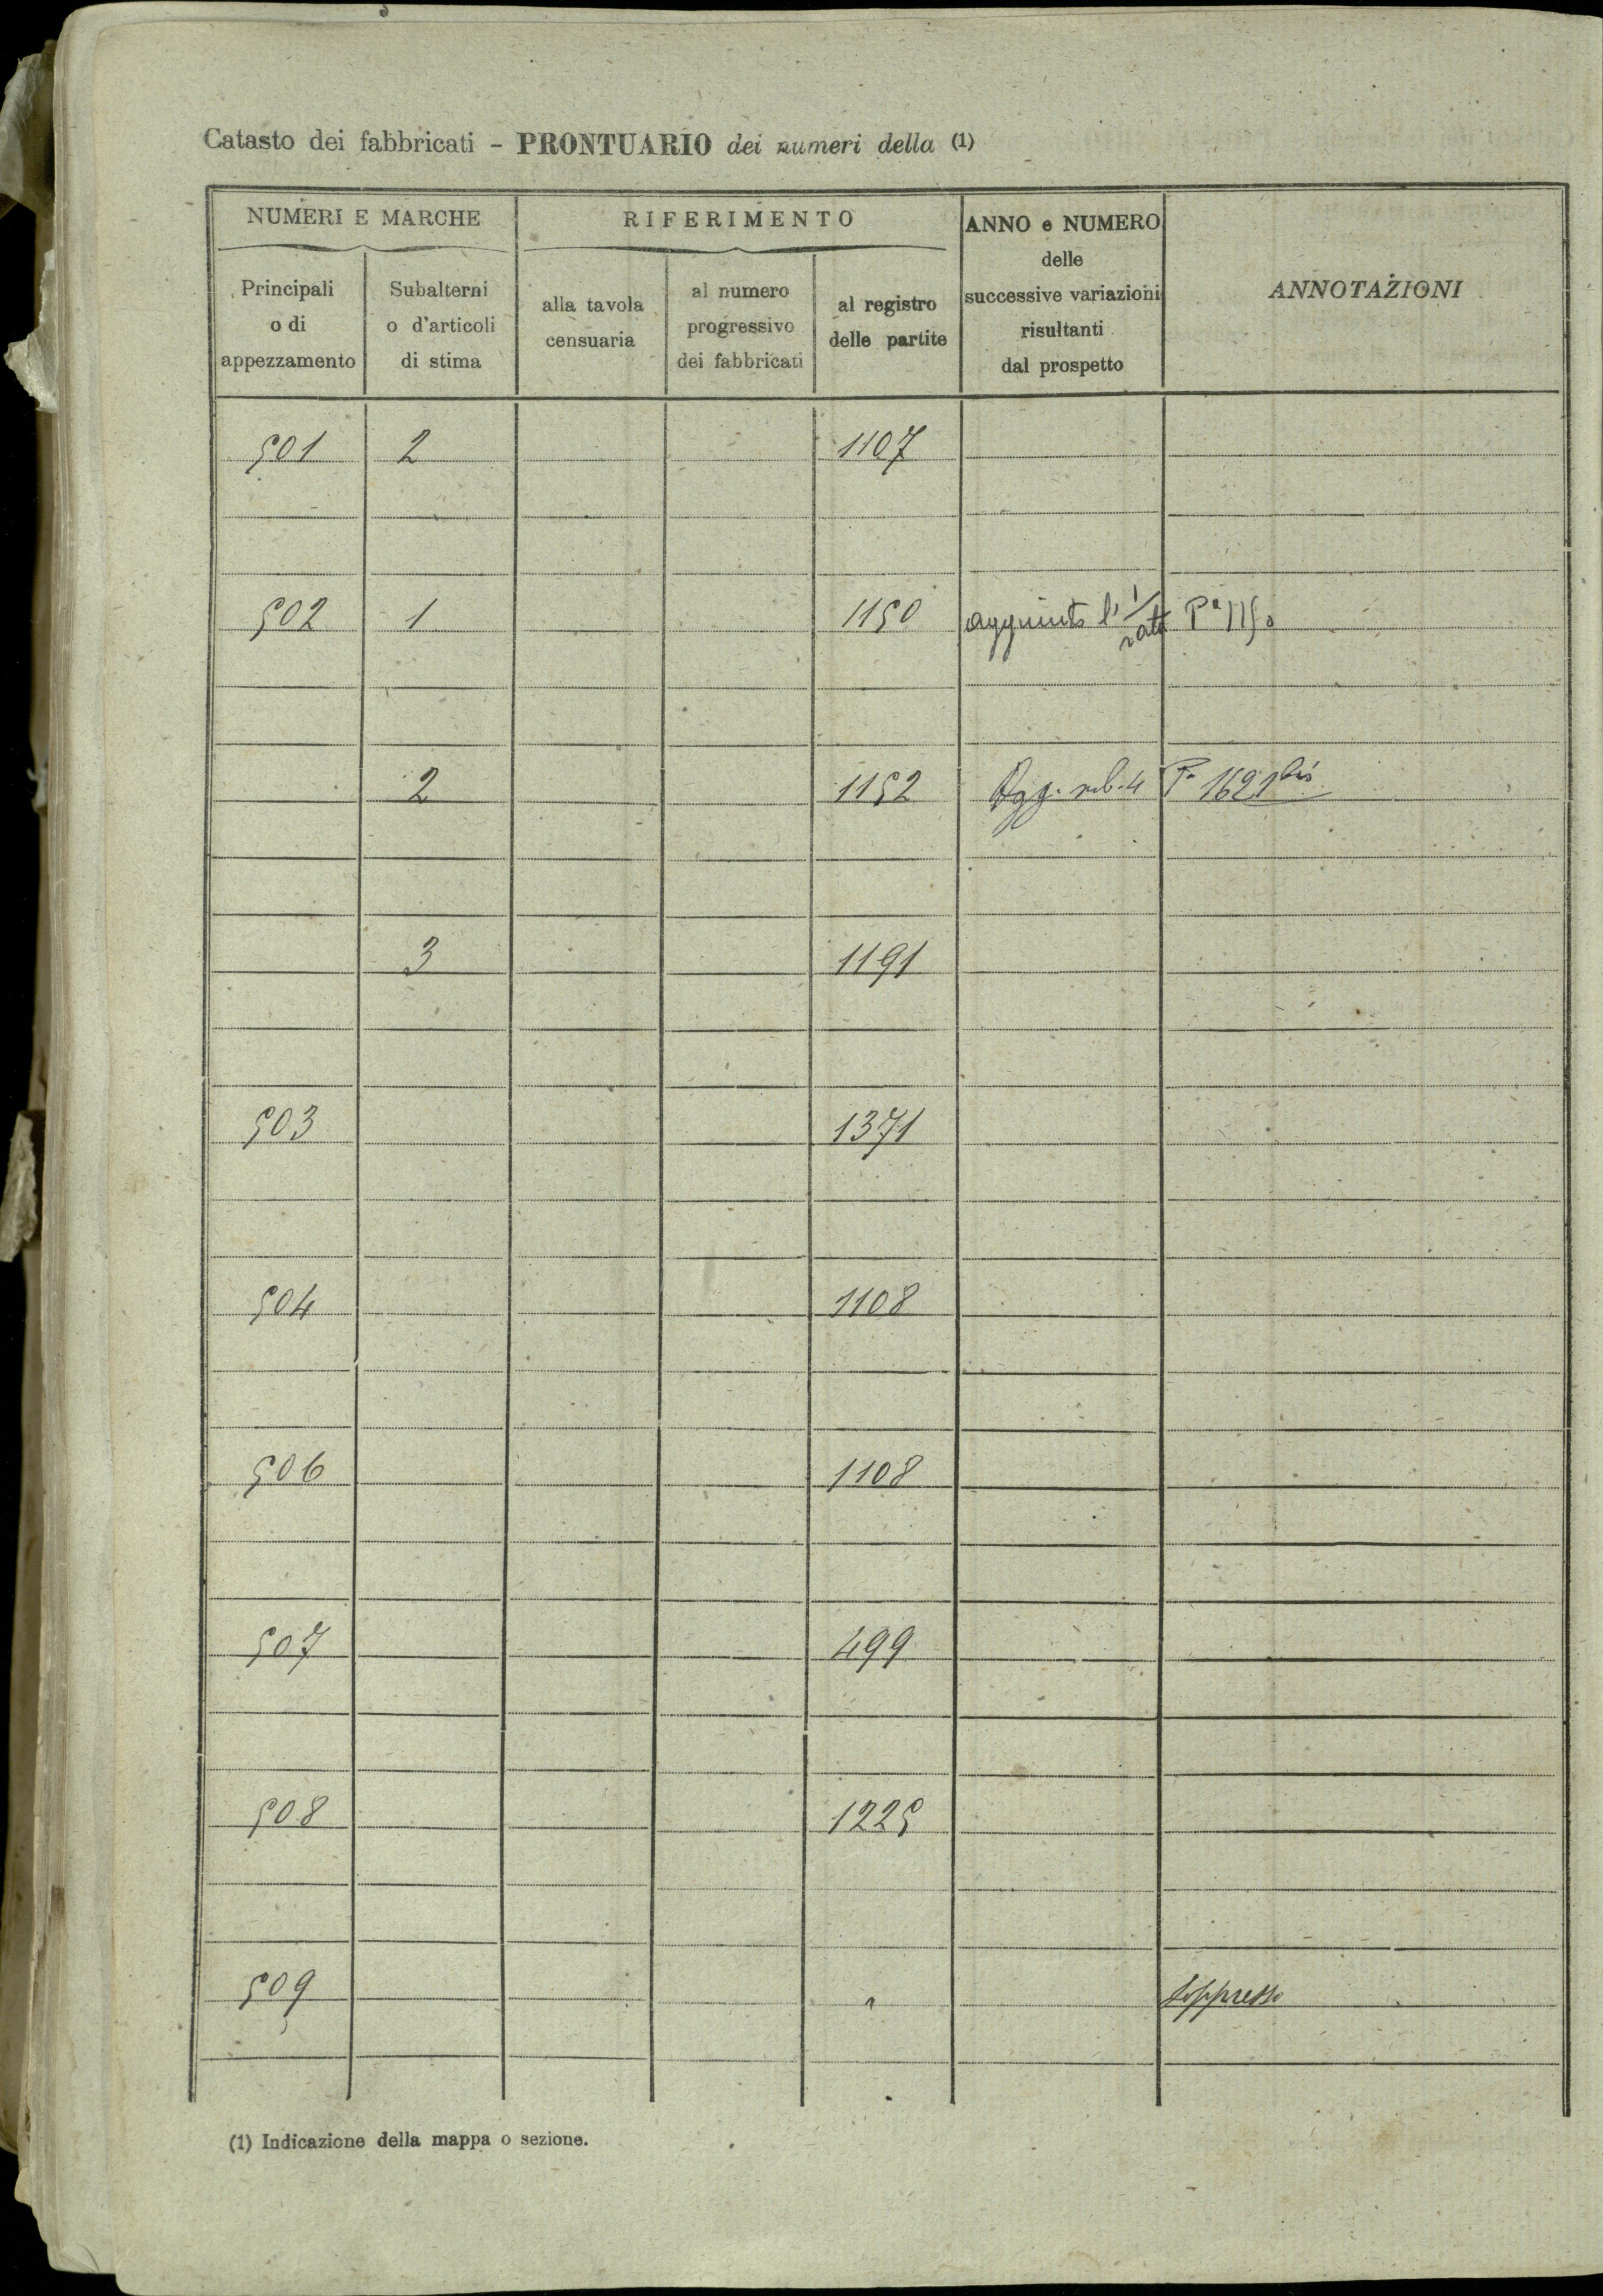 Catasto dei fabbricati - PRONTUARIO dei numeri della (1)
NUMERI E MARCHE RIFERIMENTO ANNO e NUMERO delle successive variazioni risultanti dal prospetto ANNOTAZIONI
Principali o di appezzamento Subalterni o d'articoli di stima alla tavola censuaria al numero progressivo dei fabbricati al registro delle partite
501 2 1107
502 1 1150 aggiunto l' Pa 1150
2 1152 Agg. sub. 4 Pa 1621 bis
3 1191
503 1371
504 1108
506 1108
507 499
508 1225
509 " Soppresso
(1) Indicazione della mappa o sezione.